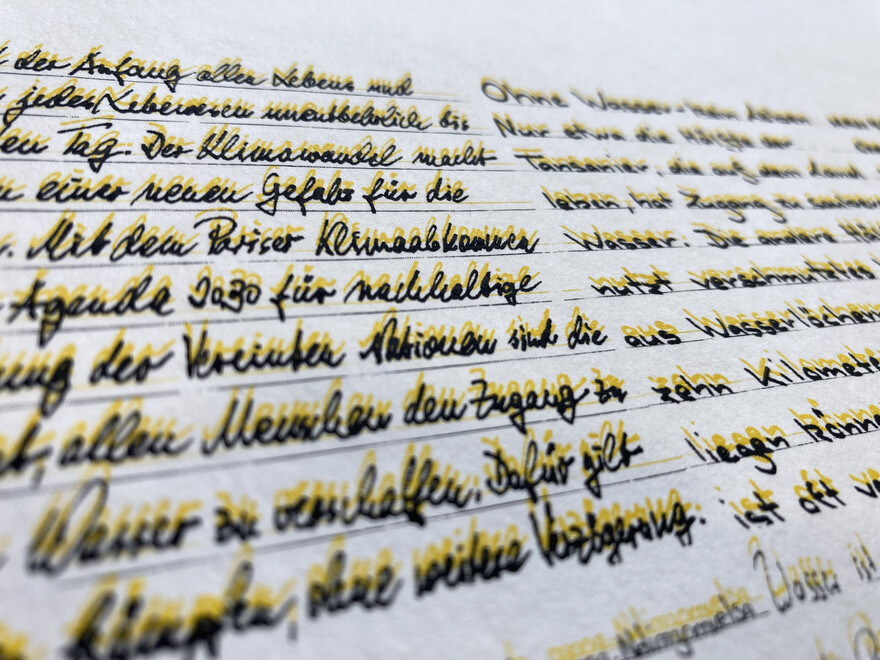 der Anfang allen Lebens und
jedes Lebewesen unentbehrlich bis
Tag. Der Klimawandel macht
einer neuen Gefahr für die
Mit dem Pariser Klimaabkommen
Agenda 2030 für nachhaltige
der Vereinten Nationen sind die
allen Menschen den Zugang zu
Wasser zu verschaffen. Dafür gilt
kämpfen, ohne weitere Verzögerung.
Ohne Wasser kein Leben
Nur etwa die Hälfte der
Tansanier, die auf dem Land
leben, hat Zugang zu
Wasser. Die andere
nutzt verschmutztes
aus Wasserlöchern
zehn Kilometer
liegen können
ist oft
Wasser ist